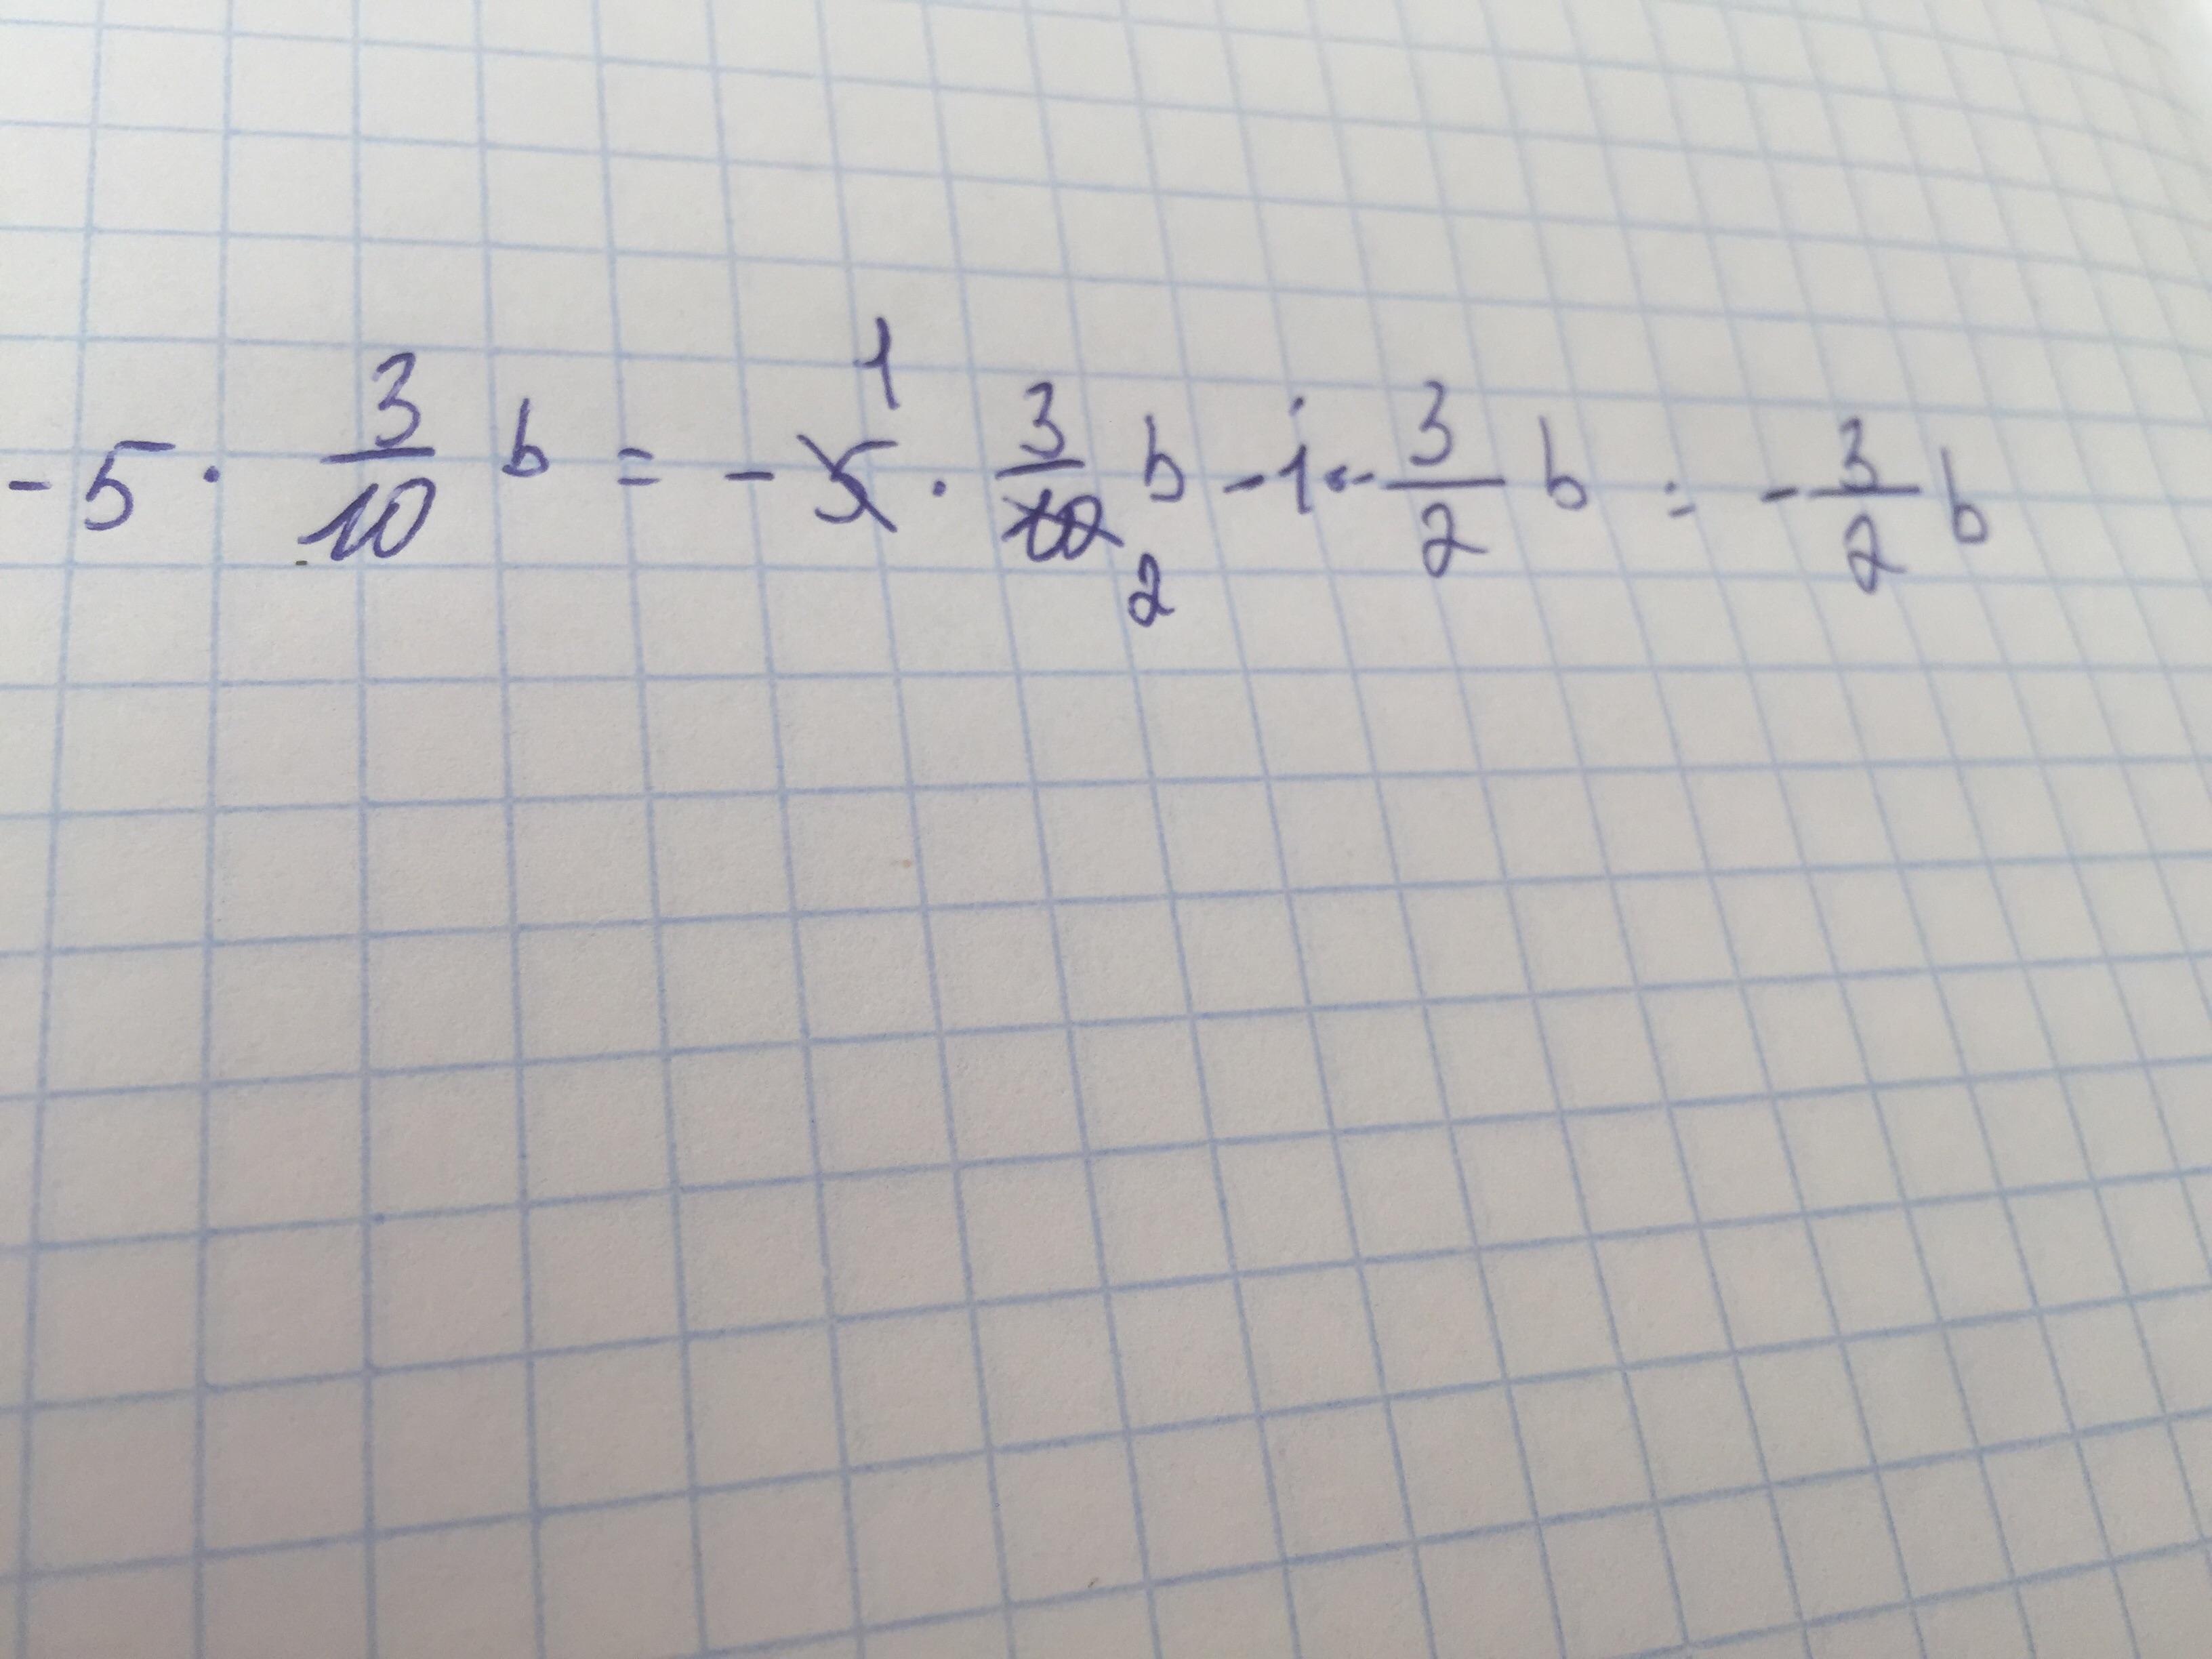 -5 · 3/10 b = -5 1 · 3/10 2 b - 1 · - 3/2 b = - 3/2 b